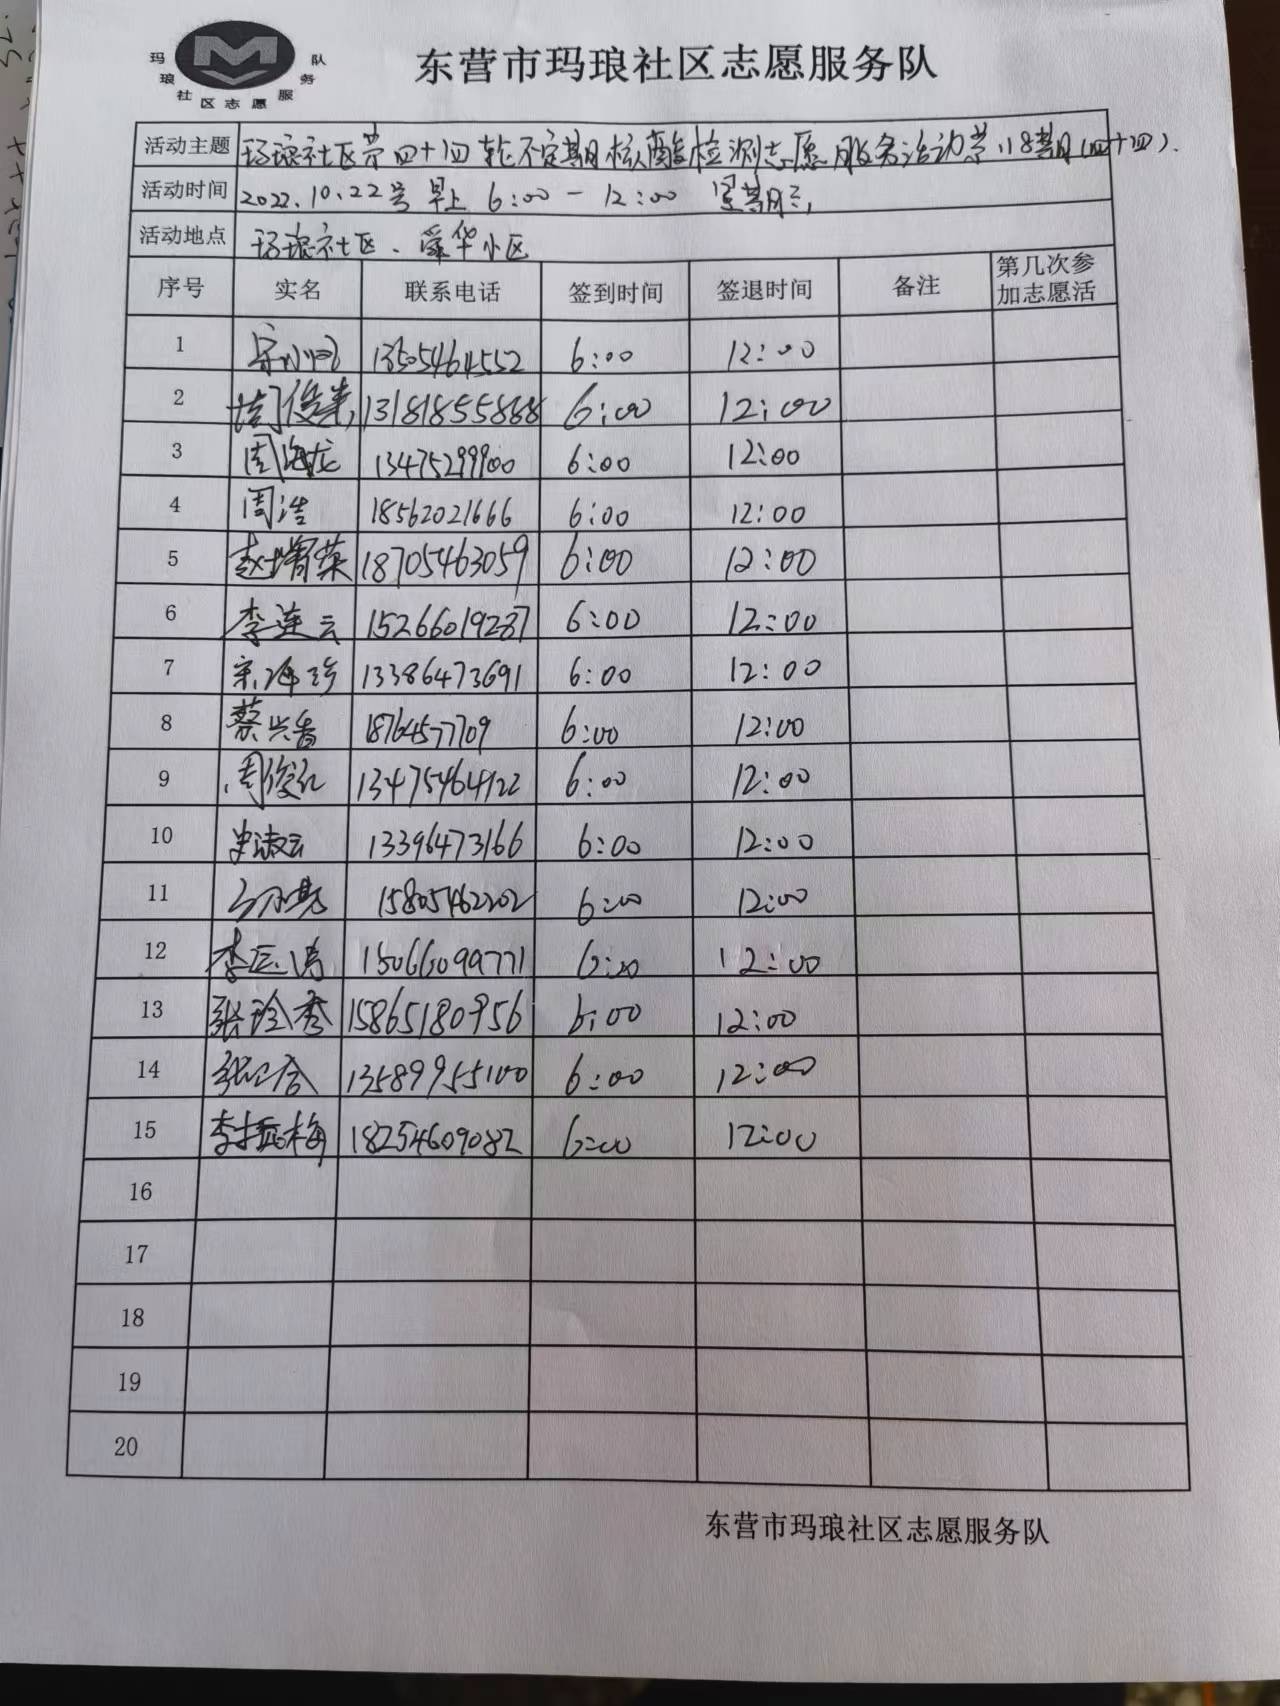 玛琅社区志愿服务队
东营市玛琅社区志愿服务队
活动主题 玛琅社区第四十四轮不定期核酸检测志愿服务活动第118期(四十四).
活动时间 2022.10.22号 早上 6:00-12:00 星期
活动地点 玛琅社区、舜华小区
序号 实名 联系电话 签到时间 签退时间 备注 第几次参加志愿活
1 13505464552 6:00 12:00
2 周俊 13181855888 6:00 12:00
3 周海龙 13475299900 6:00 12:00
4 周浩 18562021666 6:00 12:00
5 赵增荣 18705463059 6:00 12:00
6 李莲云 15266019287 6:00 12:00
7 宋海珍 13386473691 6:00 12:00
8 蔡兴香 18764577709 6:00 12:00
9 周俊 13475464122 6:00 12:00
10 史淑云 13396473166 6:00 12:00
11 15805462202 6:00 12:00
12 李 15066099771 6:00 12:00
13 张玲秀 15865180956 6:00 12:00
14 张 13589955100 6:00 12:00
15 李振梅 18254609082 6:00 12:00
16
17
18
19
20
东营市玛琅社区志愿服务队